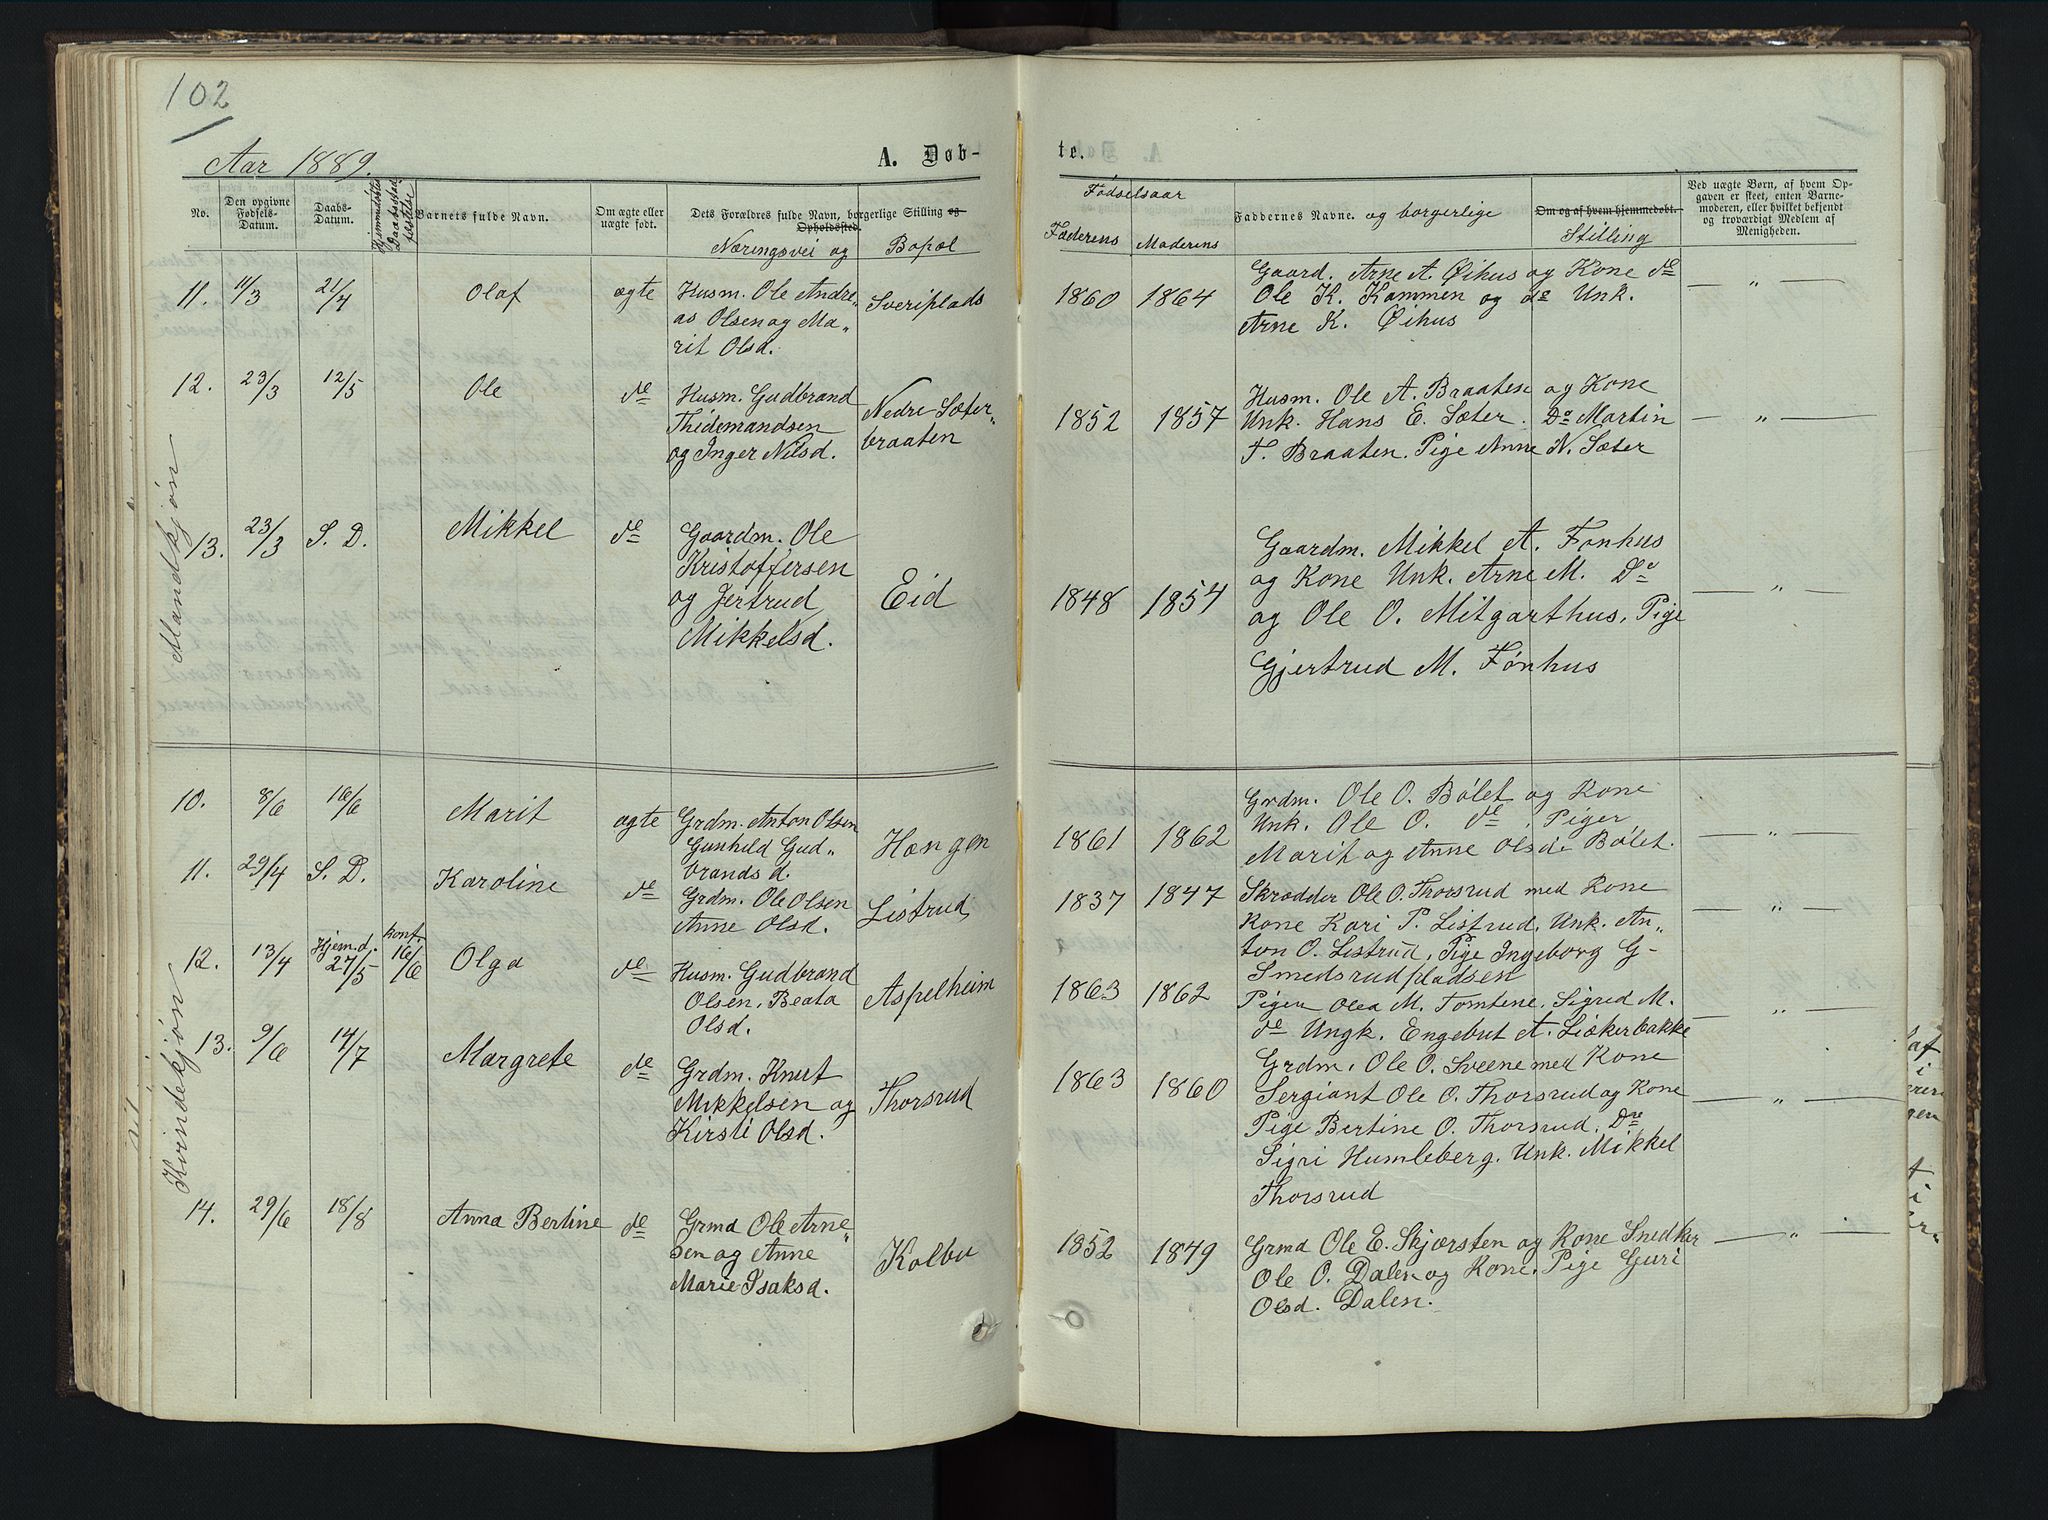 102
Aar 1889.
A. Døb-
te.
No.
Den opgivne Fødsels-Datum.
Daabs-Datum.
Barnets fulde Navn.
Om ægte eller uægte født.
Dets Forældres fulde Navn, borgerlige Stilling og Opholdssted.
Næringsvei og Bopæl
Fødselsaar
Faderens
Moderens
Faddernes Navne. og borgerlige
Om og af hvem hjemmedøbt.
Stilling
Ved uægte Børn, af hvem Op-
gaven er skeet, enten Barne-
moderen, eller hvilket bekjendt
og troværdigt Medlem af
Menigheden.
Mandkjøn
11. 11/3 21/4 Olaf ægte Husm. Ole Andre-
as Olsen og Ma-
rit Olsd.
Sveriplads
1860 1864
Gaard. Arne A. Øihus og Kone de
Ole K. Kammen og do Unk.
Arne K. Øihus
— " —
12. 23/3 12/5 Ole de Husm. Gudbrand
Thidemandsen
og Inger Nilsd.
Nedre Sæter-
braaten
1852 1857
Husm. Ole A. Braaten og Kone
Unk. Hans E. Sæter. Do Martin
T. Braaten. Pige Anne N. Sæter
— " —
13. 23/3 S. D. Mikkel de Gaardm. Ole
Kristoffersen
og Jertrud
Mikkelsd.
Eid
1848 1854
Gaardm. Mikkel A. Fønhus
og Kone Unk. Arne M. Do
og Ole O. Mitgarthus, Pige
Gjertrud M. Fønhus
— " —
Kvindekjøn
10. 8/6 16/6 Marit ægte Grdm. Anton Olsen
Gunhild Gud-
brandsd.
Hængen
1861 1862
Grdm. Ole O. Bølet og Kone
Unk. Ole O. de, Piger
Marit og Anne Olsd. Bølet.
— " —
11. 29/4 S. D. Karoline de Grdm. Ole Olsen
Anne Olsd.
Listrud
1837 1847
Skrædder Ole O. Thorsrud med Kone
Kone Kari P. Listrud, Unk. An-
ton O. Listrud, Pige Ingeborg G-
Smedsrudpladsen
— " —
12. 13/4 Hjem.d. 27/5 Konf. 16/6 Olga de Husm. Gudbrand
Olsen, Beata
Olsd.
Aspelheim
1863 1862
Pigen Olea M. Tomtene, Sigrid M.
de Ungk. Engebut A. Liskerbakke
— " —
13. 9/6 14/7 Margrete de Grdm. Knut
Mikkelsen og
Kirsti Olsd.
Thorsrud
1863 1860
Grdm. Ole O. Sveene med Kone
Sergiant Ole O. Thorsrud og Kone
Pige Bertine O. Thorsrud, Do
Sigri Humleberg. Unk. Mikkel
Thorsrud
— " —
14. 29/6 18/8 Anna Bertine de Grmd Ole Arne-
sen og Anne
Marie Isaksd.
Kolbu
1852 1849
Grmd Ole E. Skjærsten og Kone Snedker
Ole O. Dalen og Kone, Pige Guri
Olsd. Dalen.
— " —